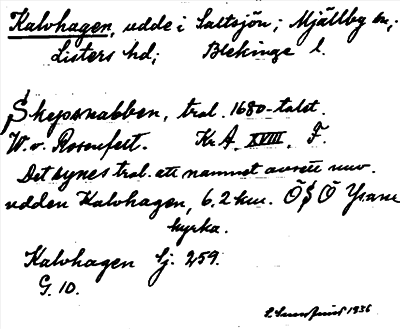 Kalvhagen, udde i Saltsjön; Mjällby sn;
Listers hd; Blekinge l.
Skepsnabben, trol. 1680-talet.
W. v. Rosenfelt. Kr A XVIII. F.
Det synes trol. att namnet avsett nuv.
udden Kalvhagen, 6,2 km. Ö S Ö Ysane
kyrka.
Kalvhagen Sj. 259.
G. 10.
1936